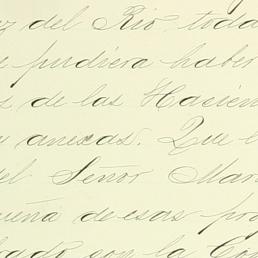 ez del Rio, toda
e pudiera haber
s de las Hacien
y anexas. Que l
del Señor Mar
ueña de esas pro
brado con la Con